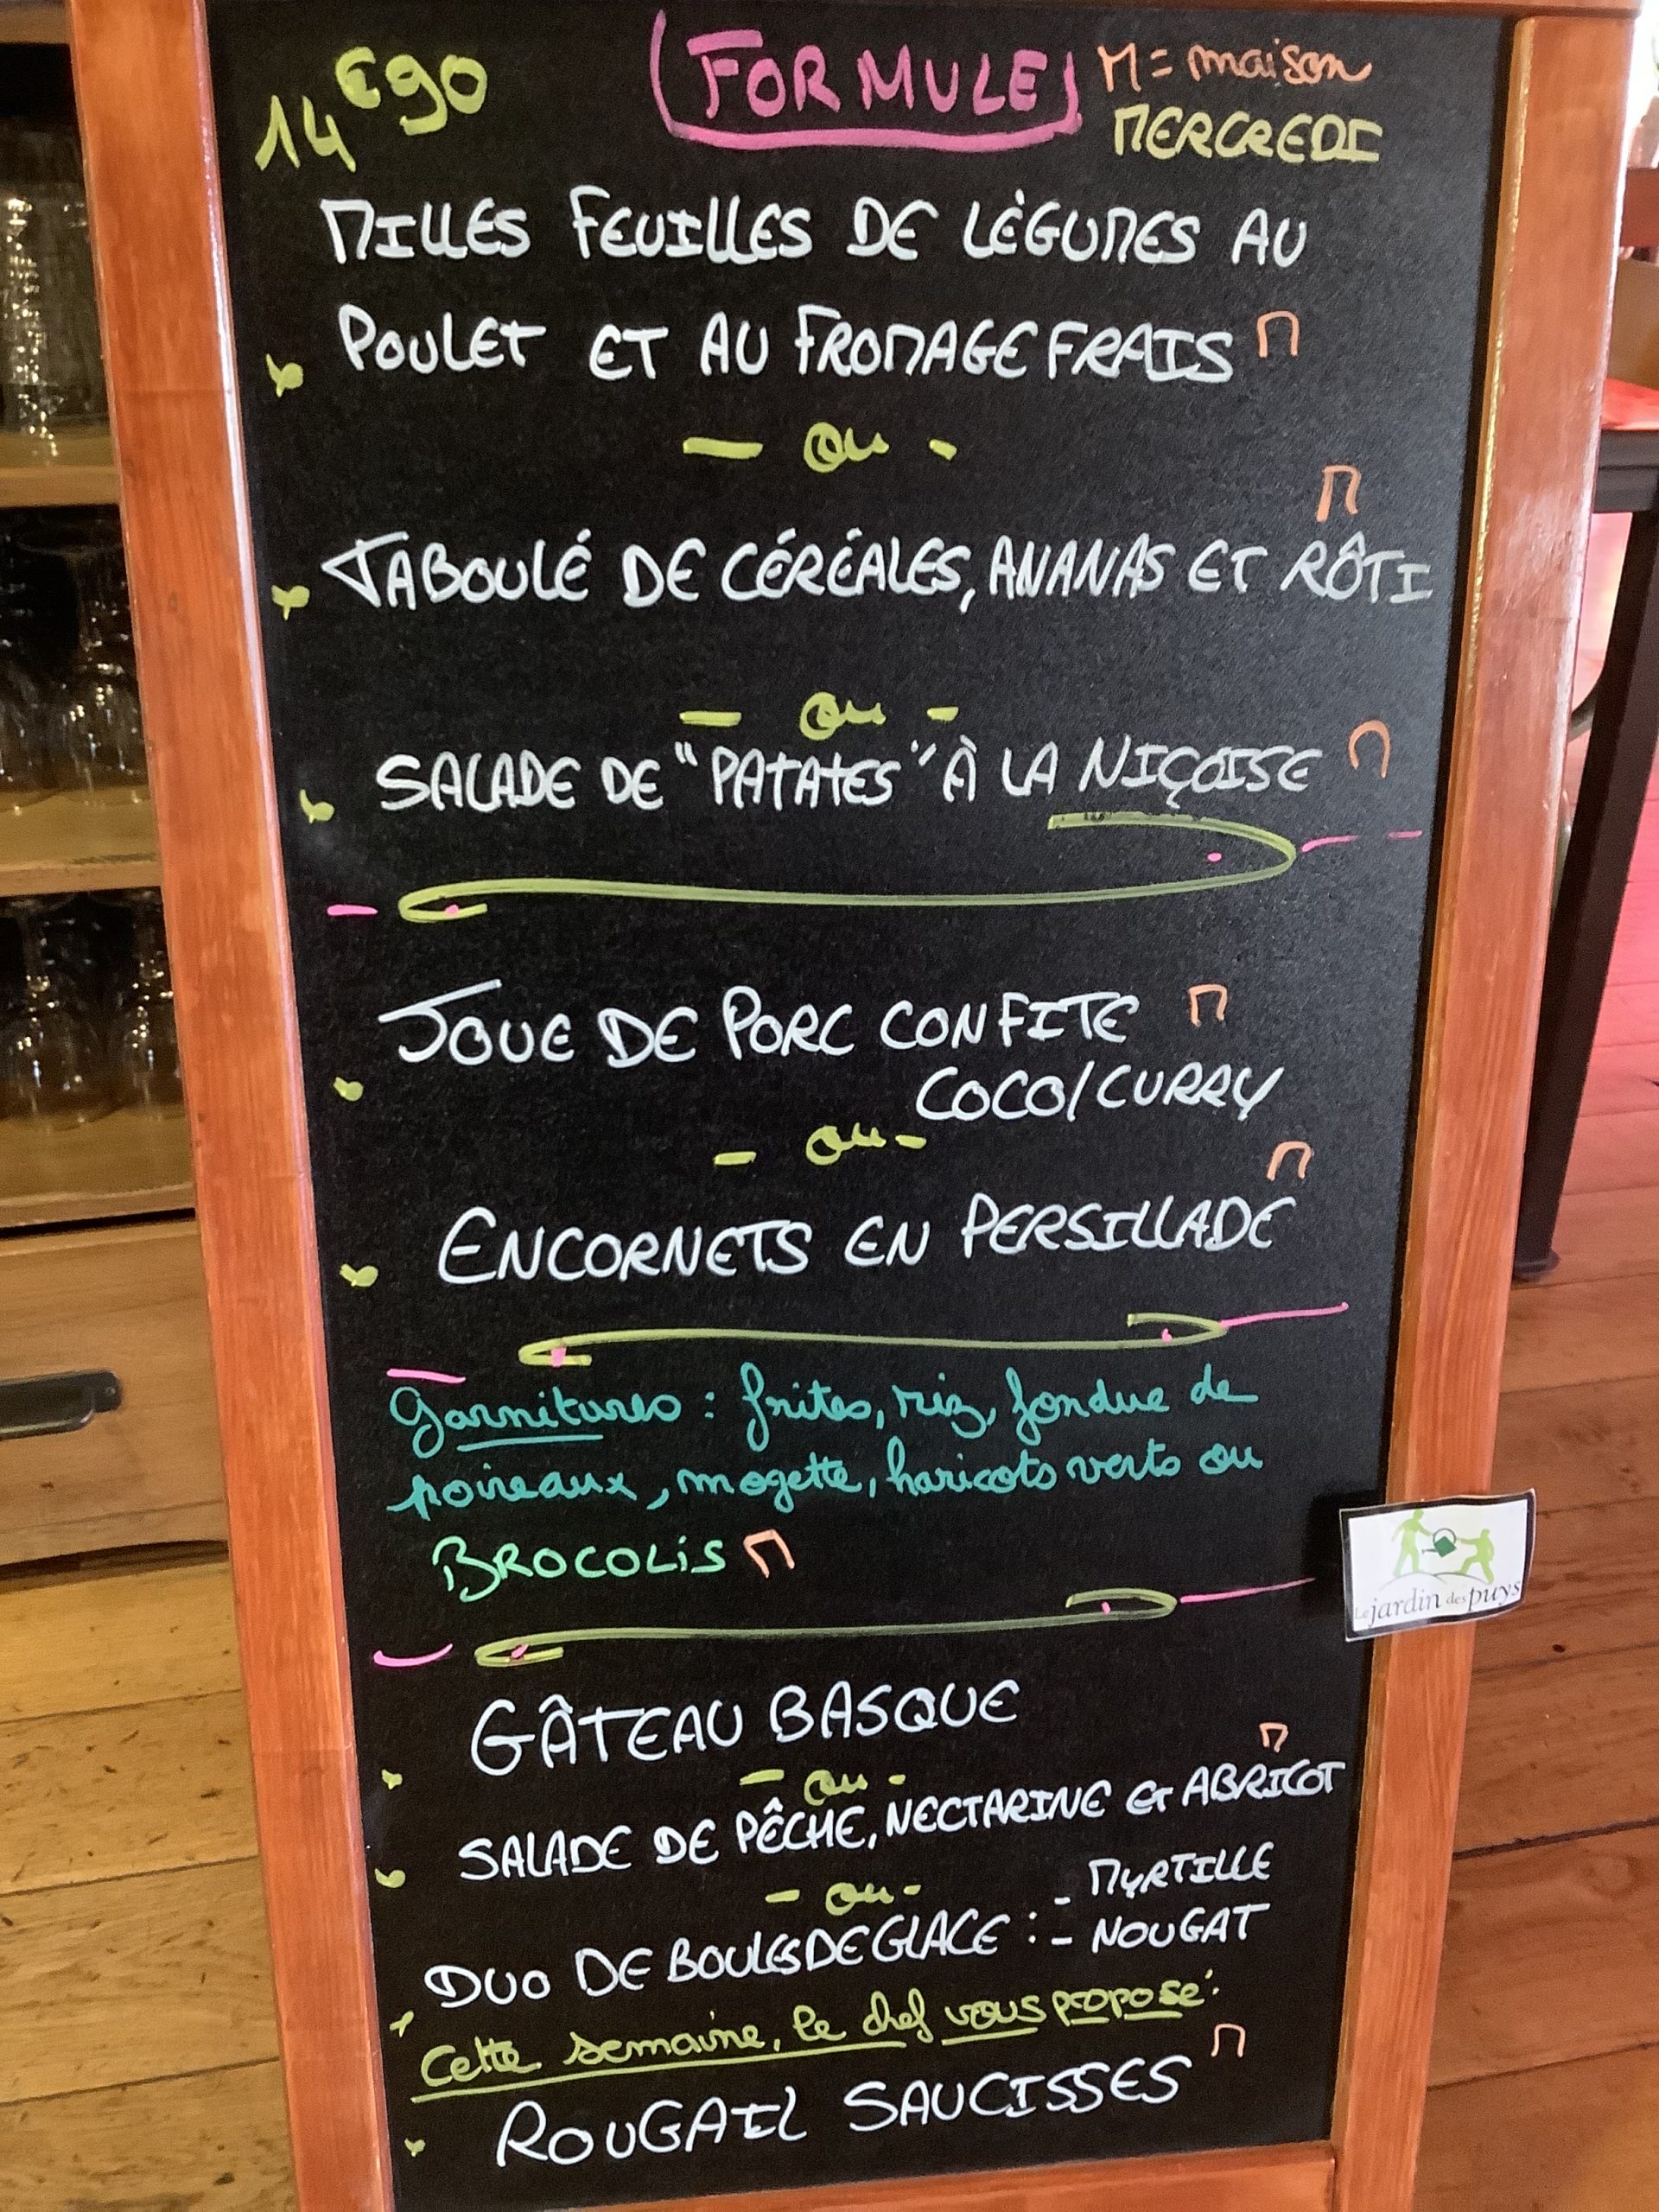 14€90 FORMULE M = maison
MERCREDI
MILLES FEUILLES DE LÉGUMES AU
POULET ET AU FROMAGE FRAIS M
- ou -
M
TABOULÉ DE CÉRÉALES, ANANAS ET RÔTI
- ou -
SALADE DE "PATATES" À LA NIÇOISE M
JOUE DE PORC CONFITE M
COCO/CURRY
- ou -
M
ENCORNETS EN PERSILLADE
Garnitures : frites, riz, fondue de
poireaux, mogette, haricots verts ou
BROCOLIS M
Le jardin des puys
GÂTEAU BASQUE
- ou -
M
SALADE DE PÊCHE, NECTARINE ET ABRICOT
- ou -
- MYRTILLE
DUO DE BOULES DE GLACE : - NOUGAT
Cette semaine, le chef vous propose :
M
ROUGAIL SAUCISSES